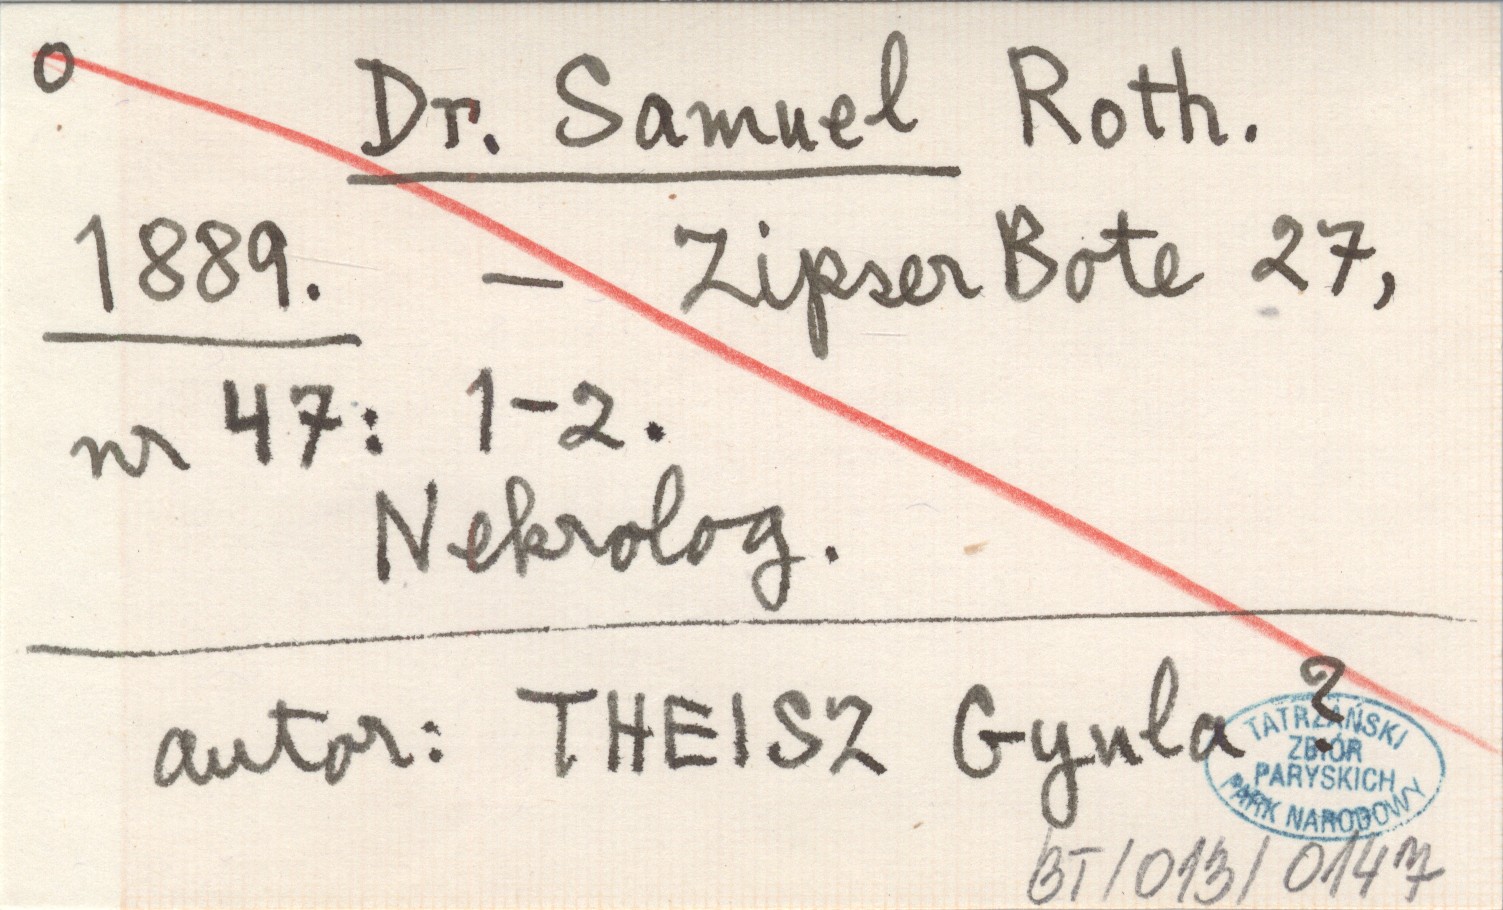 o
Dr. Samuel Roth.
1889. – Zipser Bote 27,
nr 47: 1-2.
Nekrolog.
autor: THEISZ Gyula ?
TATRZAŃSKI
ZBIÓR
PARYSKICH
PARK NARODOWY
BT/013/0147